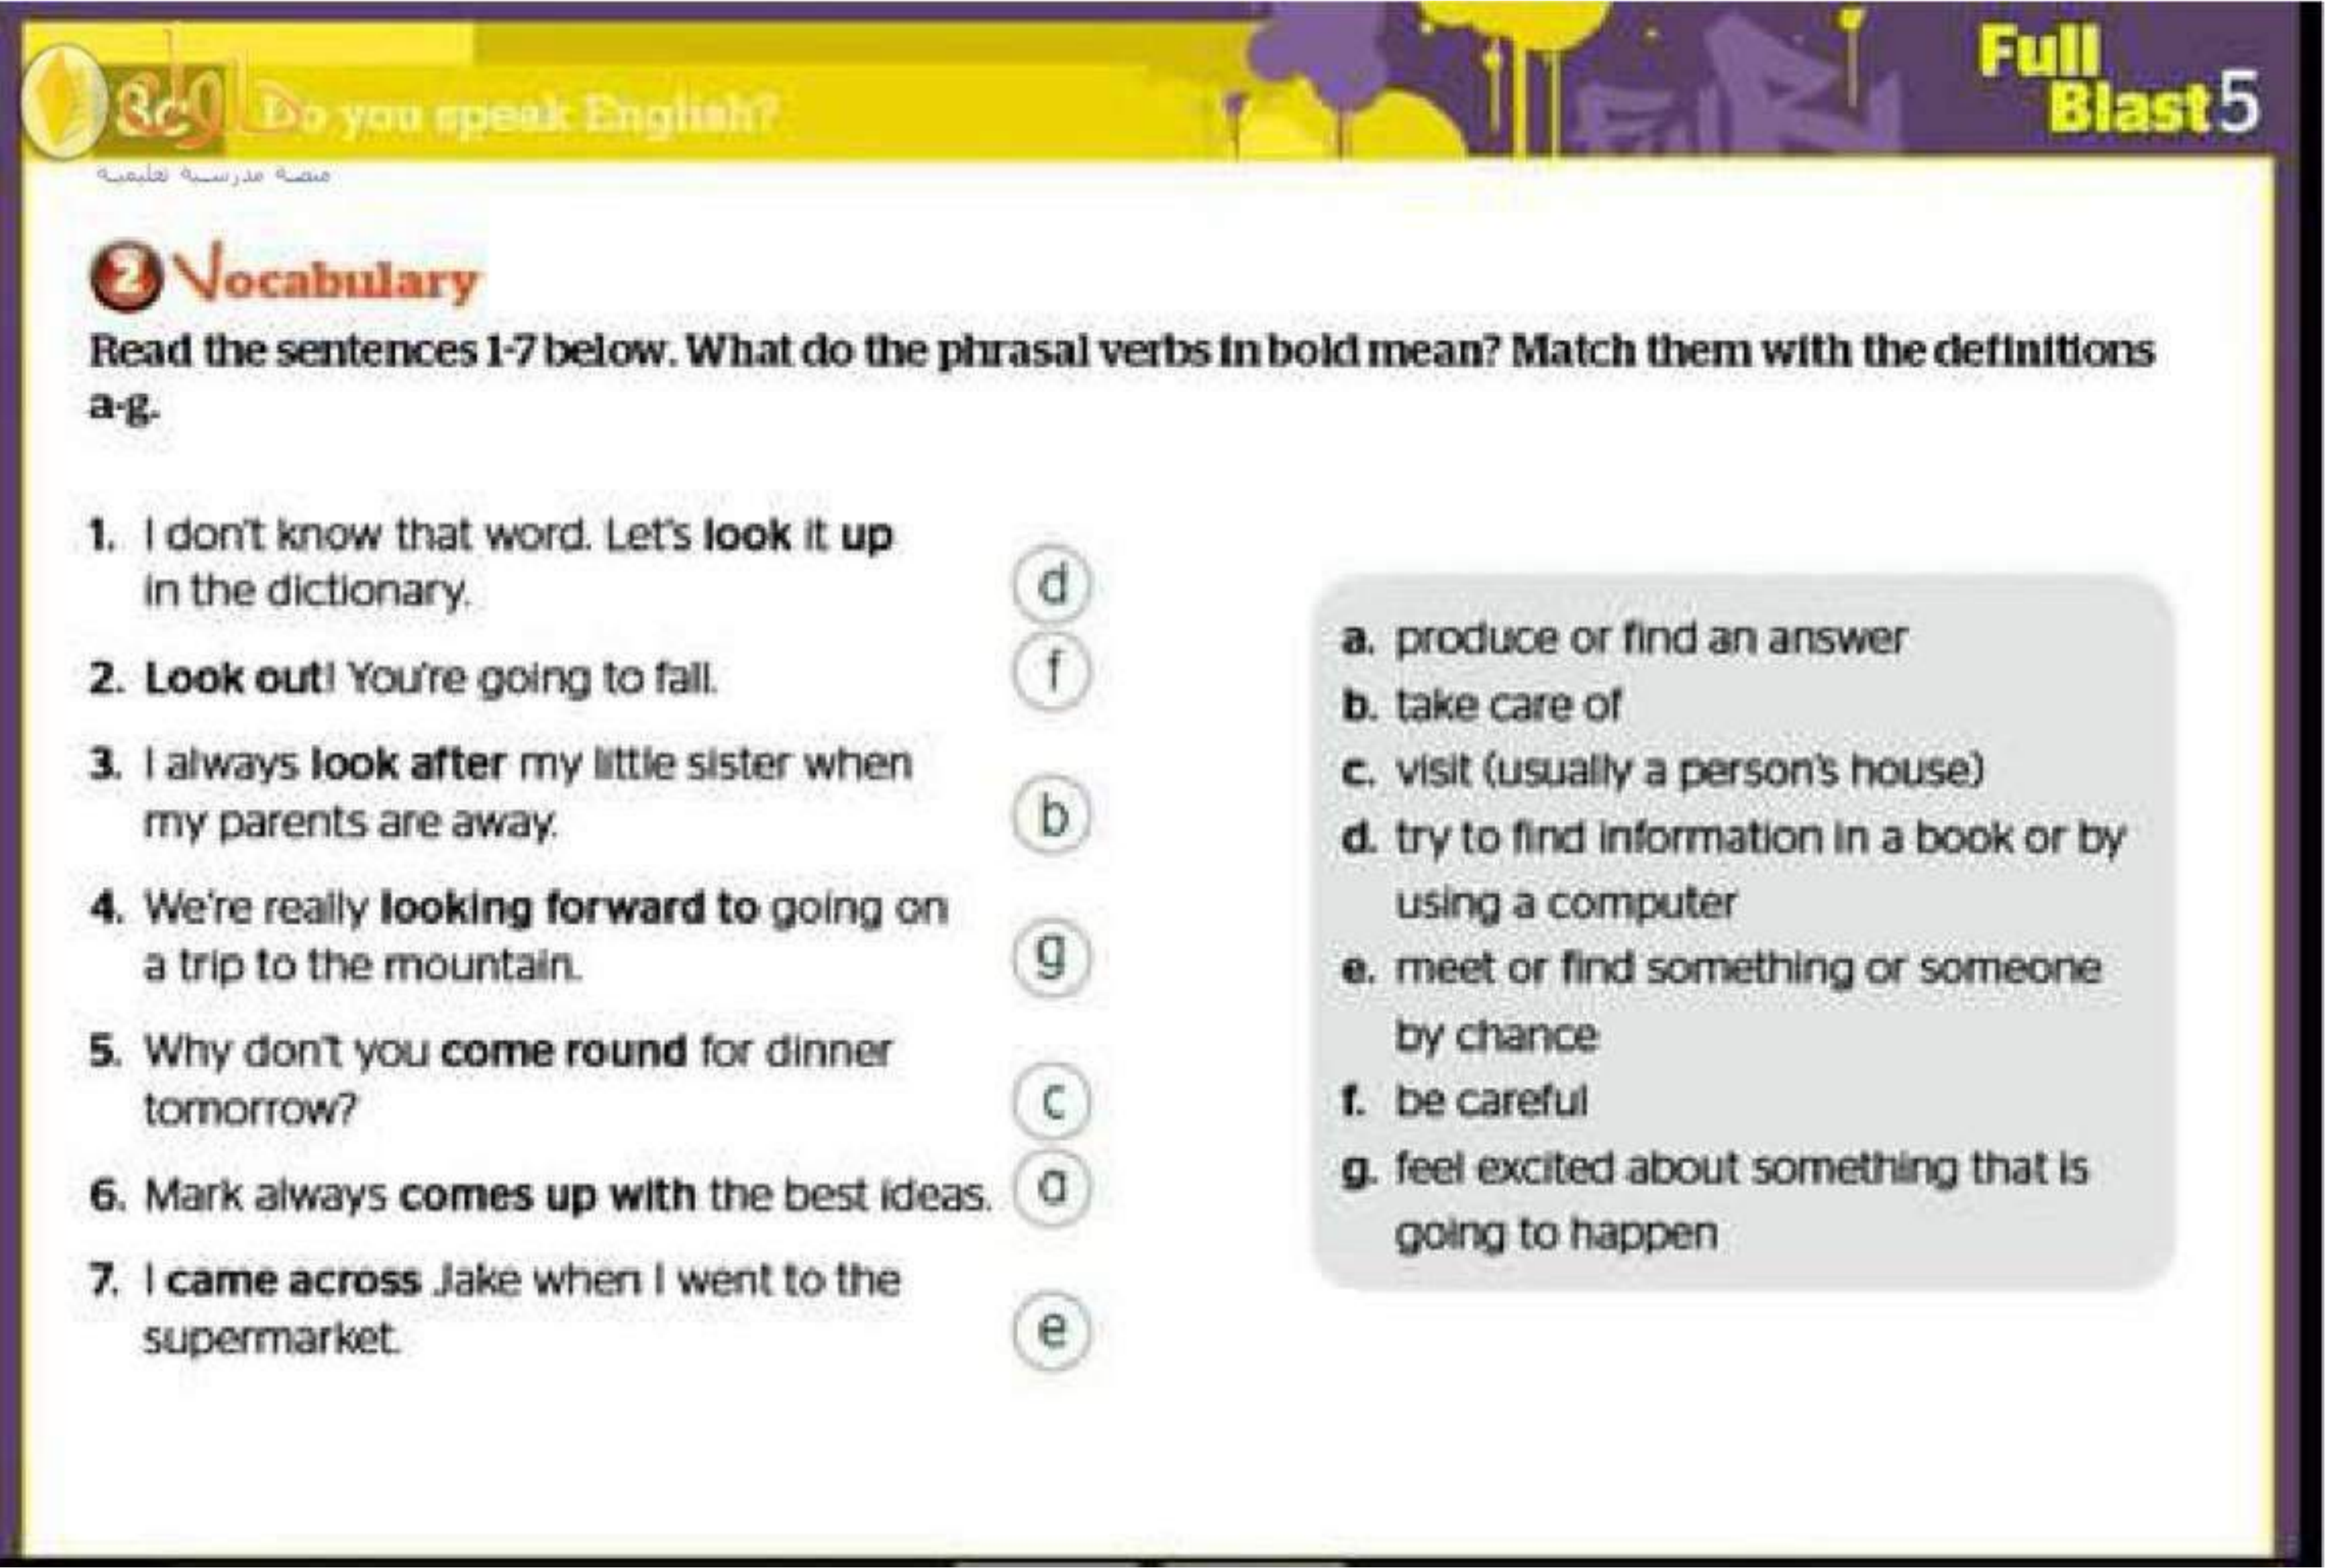 Full
Blast 5
3c Do you speak English?
منصة مدرسية تعليمية
2 Vocabulary
Read the sentences 1-7 below. What do the phrasal verbs in bold mean? Match them with the definitions
a-g.
1. I don't know that word. Let's look it up
in the dictionary.
d
2. Look out! You're going to fall.
f
3. I always look after my little sister when
my parents are away.
b
4. We're really looking forward to going on
a trip to the mountain.
g
5. Why don't you come round for dinner
tomorrow?
c
6. Mark always comes up with the best ideas.
a
7. I came across Jake when I went to the
supermarket.
e
a. produce or find an answer
b. take care of
c. visit (usually a person's house)
d. try to find information in a book or by
using a computer
e. meet or find something or someone
by chance
f. be careful
g. feel excited about something that is
going to happen